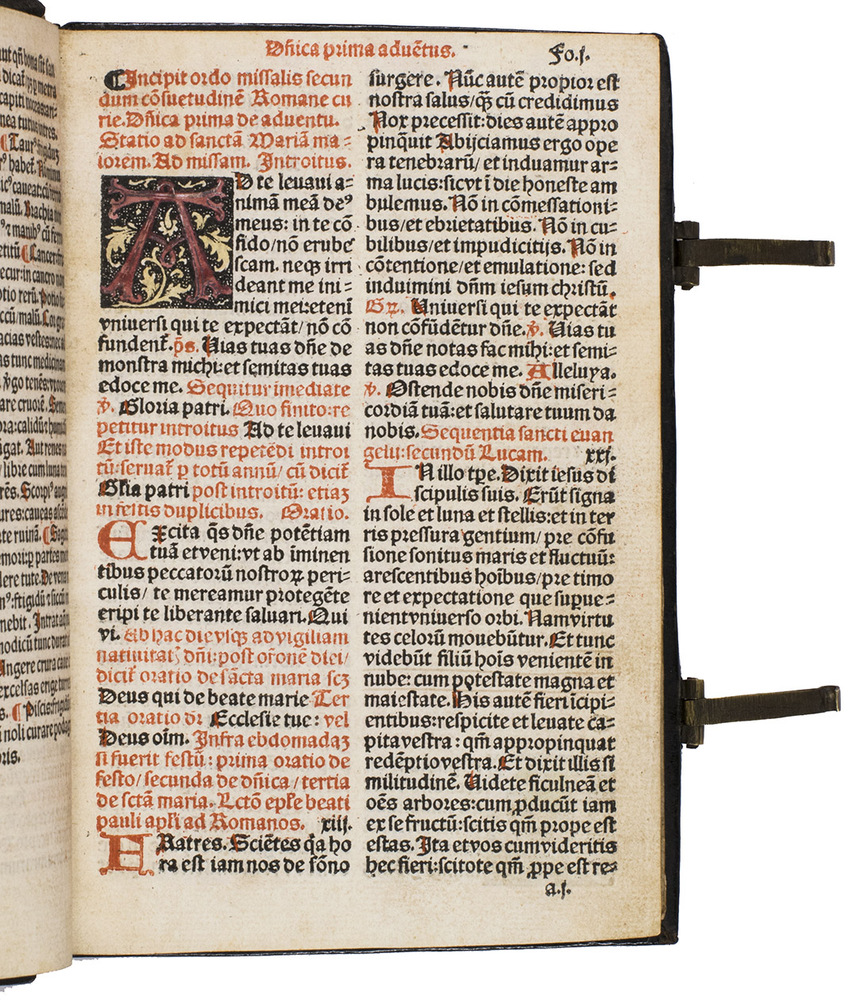 habent
malū. Brachia
Cancer
ecur: in cancro
tio rerū.
tunc
libre cum luna
Scorpi⁹
te ruinā.
lere tute. De
nebit.
modicū tunc
Tangere crura
excelsas
Piscis
noli curare
Dñica prima aduētus.
Fo.j.
¶Incipit ordo missalis secun
dum cōsuetudinē Romane cu
rie. Dñica prima de aduentu.
Statio ad sanctā Mariā ma-
iorem. Ad missam. Introitus.
AD te leuaui a=
nimā meā de⁹
meus: in te cō
fido/nō erube
scam. neqꝫ irri
deant me ini=
mici mei: etenī
vniuersi qui te expectāt/ nō cō
fundent̄. p̄s. Uias tuas dñe de
monstra michi: et semitas tuas
edoce me. Sequitur imediate
℣. Gloria patri. Quo finito: re
petitur introitus Ad te leuaui
Et iste modus repetēdi introi
tū: seruat̄ ꝑ totū annū/ cū dicit̄
Glīa patri post introitū: etiaꝫ
in festis duplicibus. Oratio.
EXcita q̄s dñe potētiam
tuā et veni: vt ab iminen
tibus peccatorū nostroꝝ peri=
culis/ te mereamur protegēte
eripi te liberante saluari. Qui
vi. Ab hac die vsqꝫ ad vigiliam
natiuitat̄ dñi: post or̄onē diei/
dicit̄ oratio de sācta maria scꝫ
Deus qui de beate marie Ter
tia oratio dr̄ Ecclesie tue: vel
Deus oīm. Infra ebdomadaꝫ
si fuerit festū: prima oratio de
festo/ secunda de dñica/ tertia
de sctā maria. Lctō epl̄e beati
pauli apl̄i ad Romanos. xiij.
FRatres. Sciētes q̄a ho
ra est iam nos de sōno
surgere. Nūc autē propior est
nostra salus/ q̄ꝫ cū credidimus
Nox precessit: dies autē appro
pinq̄uit Abijciamus ergo ope
ra tenebrarū/ et induamur ar=
ma lucis: sicvt ī die honeste am
bulemus. Nō in cōmessationi=
bus/ et ebrietatibus. Nō in cu=
bilibus/ et impudicitijs. Nō in
cōtentione/ et emulatione: sed
induimini dñm iesum christū.
Gꝝ. Uniuersi qui te expectāt
non cōfūdētur dñe. ℣. Uias tu
as dñe notas fac mihi: et semi=
tas tuas edoce me. Alleluya.
℣. Ostende nobis dñe miseri=
cordiā tuā: et salutare tuum da
nobis. Sequentia sancti euan
gelij: secundū Lucam. xxj.
IN illo tp̄e. Dixit iesus di
scipulis suis. Erūt signa
in sole et luna et stellis: et in ter
ris pressura gentium/ pre cōfu
sione sonitus maris et fluctuū:
arescentibus hoībus/ pre timo
re et expectatione que supue=
nient vniuerso orbi. Nam virtu
tes celorū mouebūtur. Et tunc
videbūt filiū hoīs venientē in
nube: cum potestate magna et
maiestate. His autē fieri īcipi=
entibus: respicite et leuate ca=
pita vestra: qm̄ appropinquat
redēptio vestra. Et dixit illis si
militudinē. Uidete ficulneā et
oēs arbores: cum ꝓducūt iam
ex se fructū: scitis qm̄ prope est
estas. Ita et vos cum videritis
hec fieri: scitote qm̄ ꝓpe est re=
a.j.